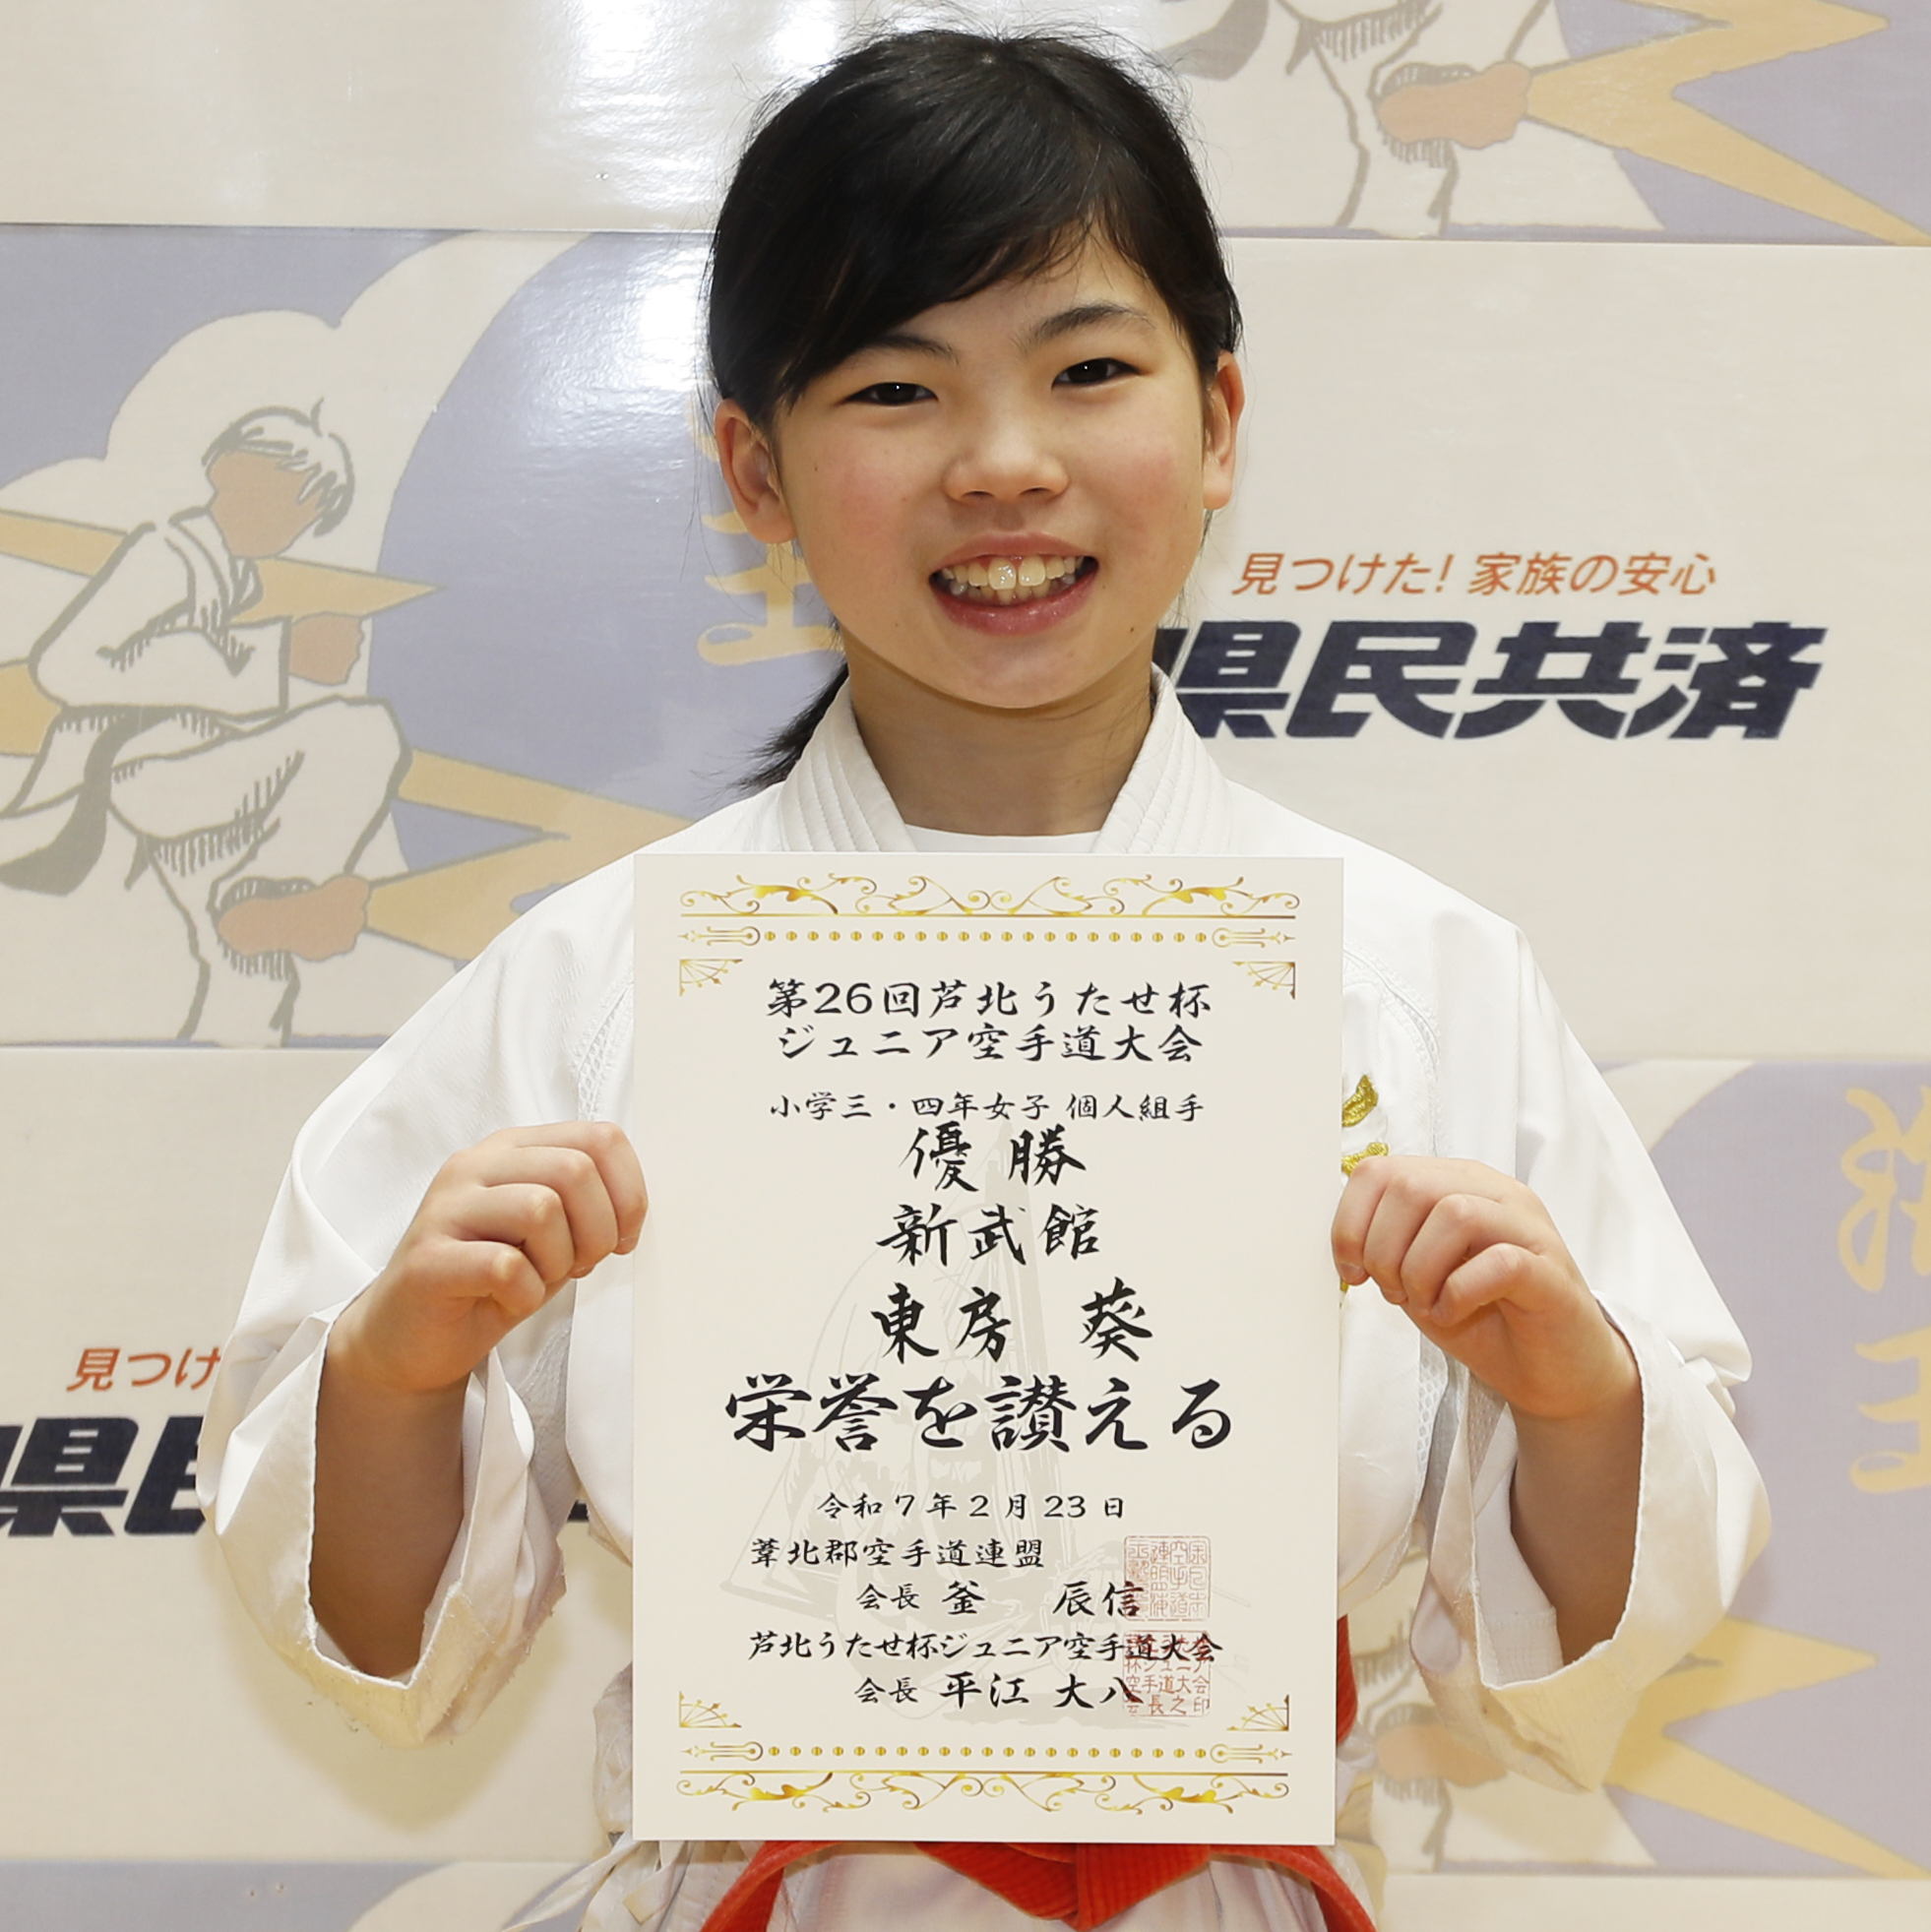 見つけた! 家族の安心
県民共済
第26回芦北うたせ杯
ジュニア空手道大会
小学三・四年女子 個人組手
優勝
新武館
東房 葵
栄誉を讃える
令和7年2月23日
葦北郡空手道連盟
会長 釜 辰信
芦北うたせ杯ジュニア空手道大会
会長 平江 大八
見つけ
県民